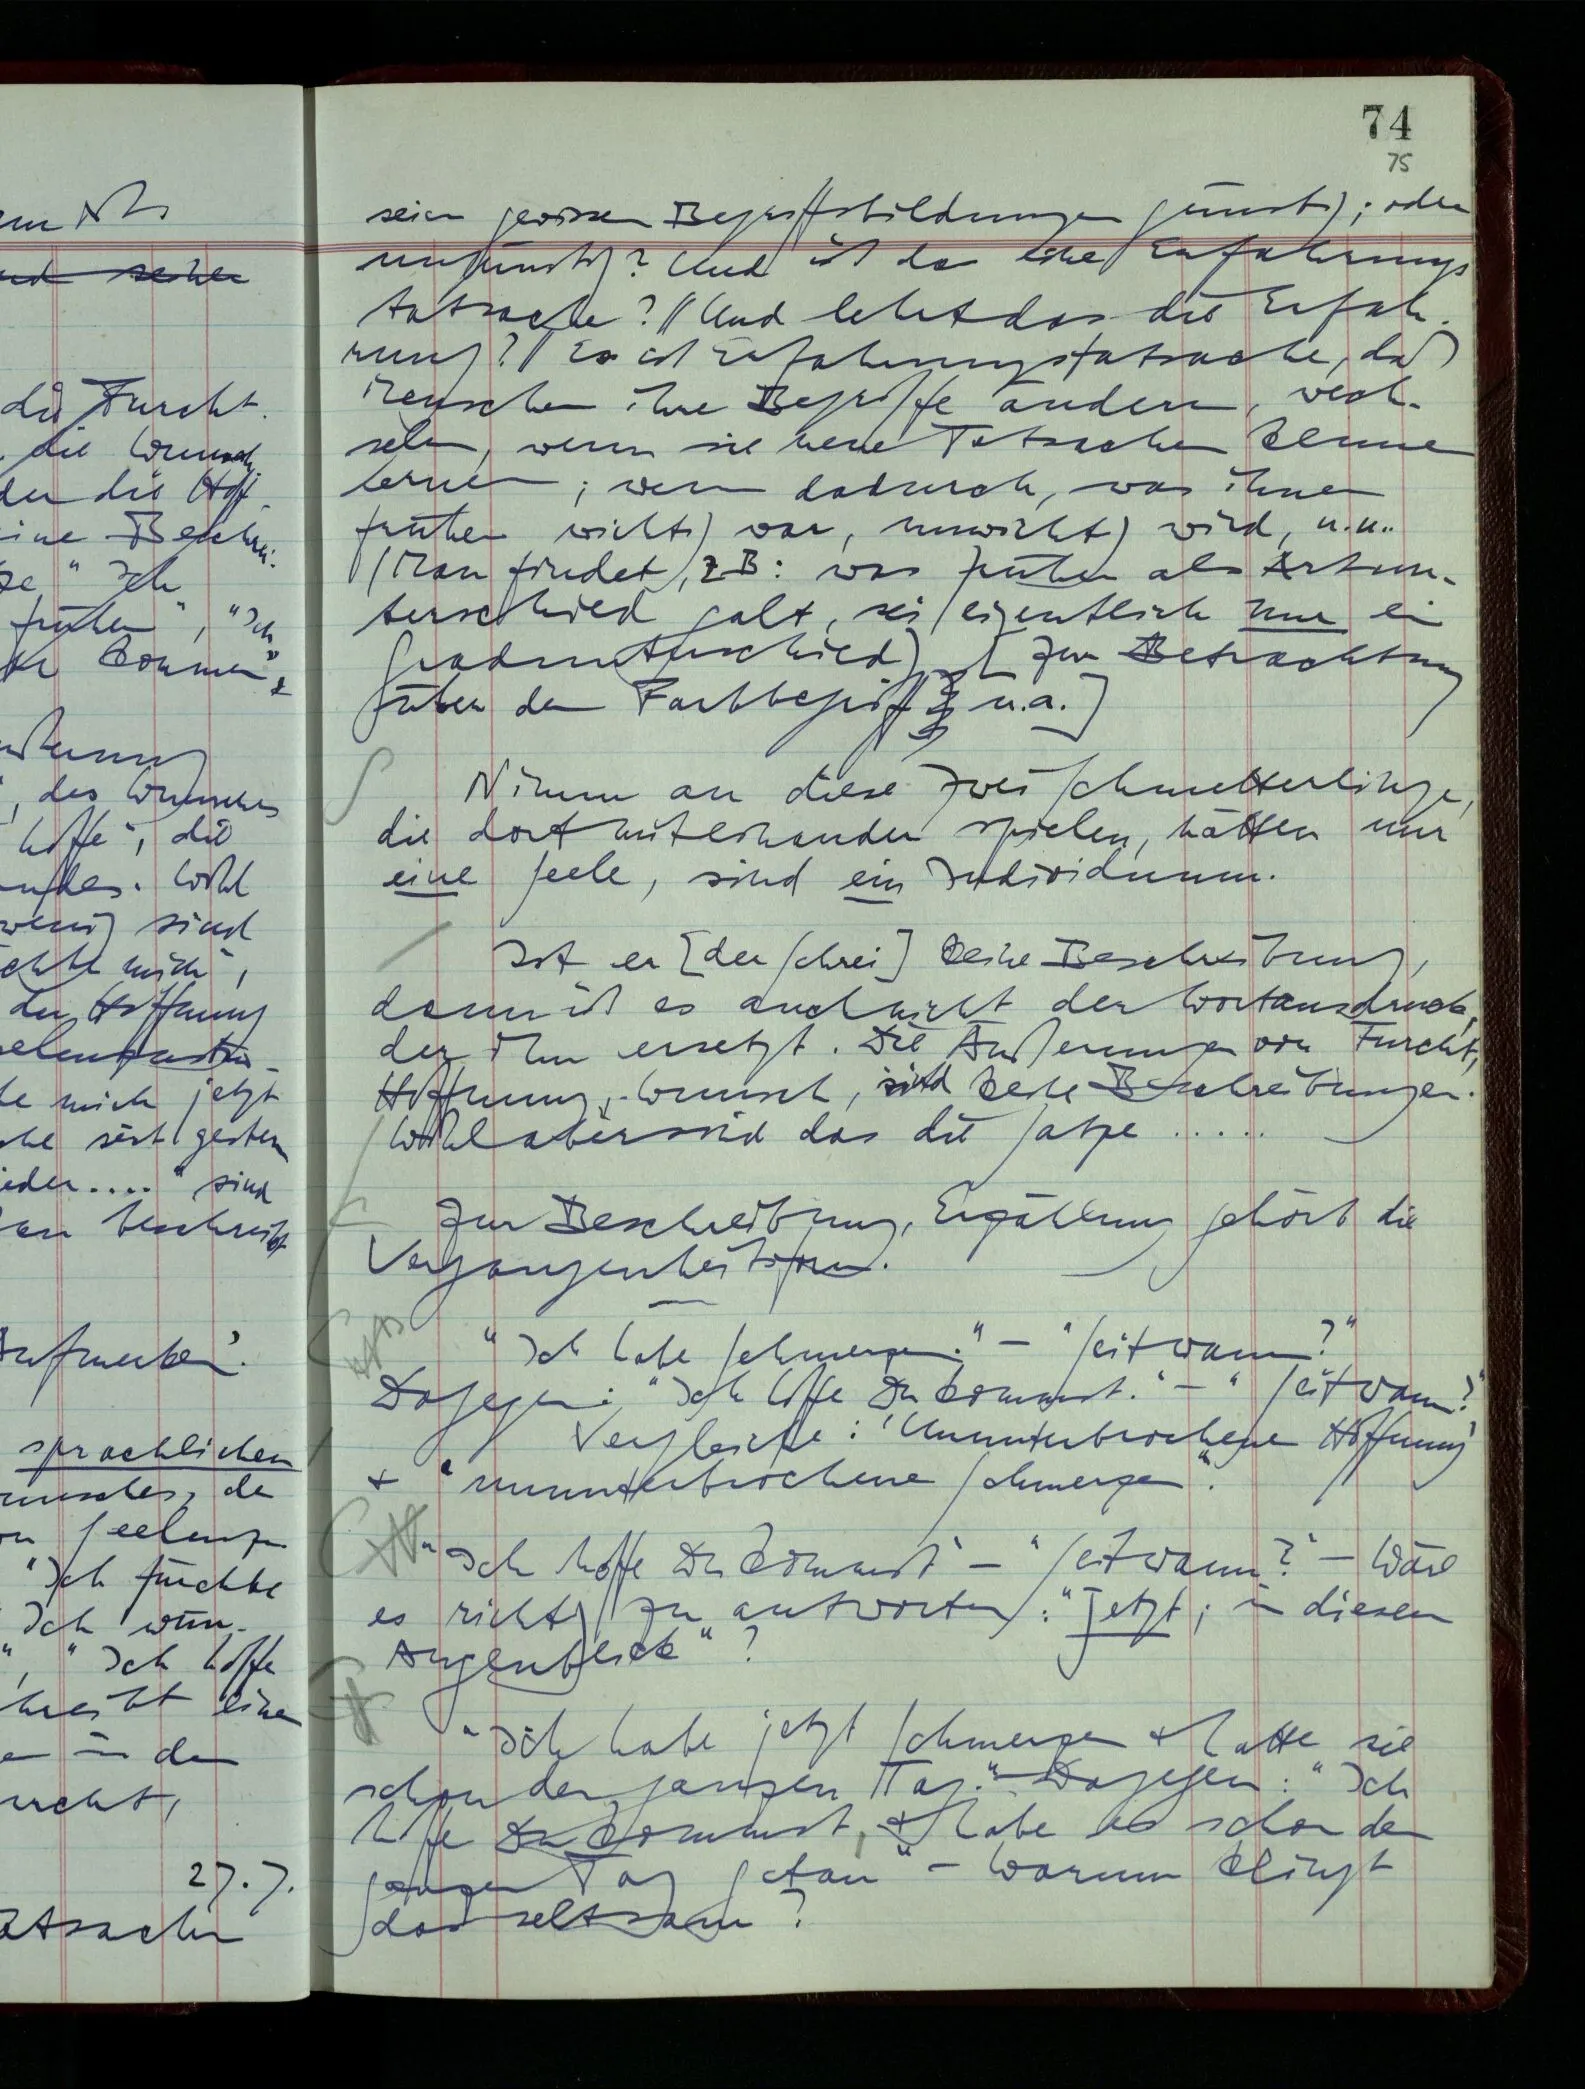 die Furcht.
die Wunsch
der die Hoff-
eine Beschrei-
" Ich
früher", "Ich
kommen" &
des Wunsches
hoffe", die
Wohl
wenig sind
mich",
der Hoffnung
mich jetzt
seit gestern
wieder...." sind
beschreibt
sprachlichen
Wunsches, da
"Ich fürchte
Ich wün-
", "Ich hoffe
einen
in der
27.7.
Tatsachen
74
75
seien gewissen Begriffsbildungen günstig; oder
ungünstig? Und ist das eine Erfahrungs
tatsache? // Und lehrt das die Erfah-
rung? // Es ist Erfahrungstatsache, daß
Menschen ihre Begriffe ändern, wech-
seln, wenn sie neue Tatsachen kennen
lernen; wenn dadurch, was ihnen
früher wichtig war, unwichtig wird, u.u..
(Man findet, z.B: was früher als Artun-
terschied galt, sei eigentlich nur ein
Gradunterschied) [Zur Betrachtung
über den Farbbegriff u.a.]
Nimm an diese zwei Schmetterlinge,
die dort miteinander spielen, hätten nur
eine Seele, sind ein Individuum.
Ist er [der Schrei] keine Beschreibung,
dann ist es auch nicht der Wortausdruck,
der ihn ersetzt. Die Äußerungen von Furcht,
Hoffnung, Wunsch, sind keine Beschreibungen.
Wohl aber sind das die Sätze .....
Zur Beschreibung, Erzählung gehört die
Vergangenheitsform.
"Ich habe Schmerzen." – "Seit wann?"
Dagegen: "Ich hoffe Du kommst." – "Seit wann?"
Vergleiche: 'Ununterbrochene Hoffnung'
& "ununterbrochene Schmerzen".
"Ich hoffe Du kommst" – "Seit wann?" – Wäre
es richtig zu antworten: "Jetzt; in diesem
Augenblick"?
"Ich habe jetzt Schmerzen & hatte sie
schon den ganzen Tag." – Dagegen: "Ich
hoffe Du kommst, & habe es schon den
ganzen Tag getan" – Warum klingt
das seltsam?